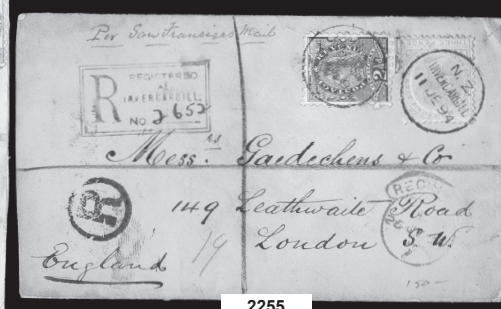 Per San Francisco Mail
R
REGISTERED
at
INVERCARGILL.
No 2652
N.Z
INVERCARGILL
11 JE 94
Messrs. Gaedechens & Co
149 Leathwaite Road
London S. W.
England
R
REG
19
150-
2255